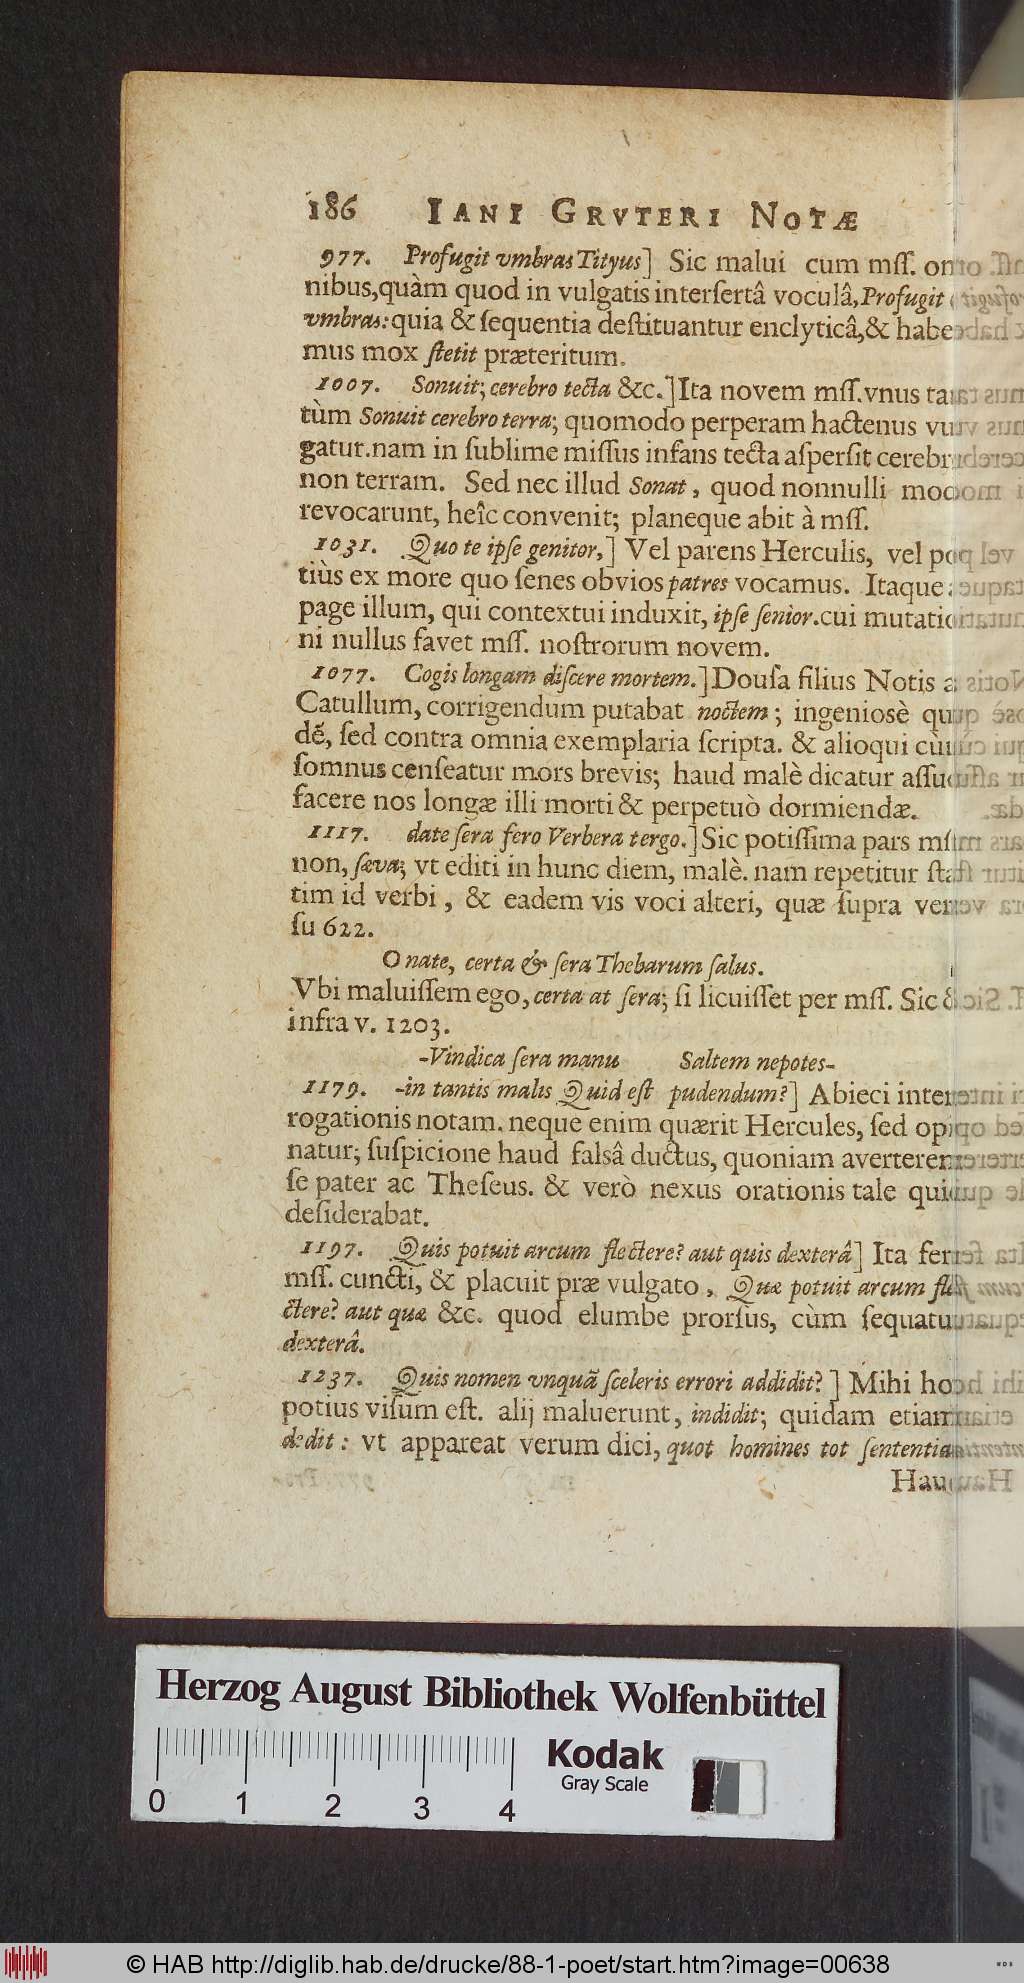 186 IANI GRVTERI NOTÆ
977. Profugit vmbras Tityus] Sic malui cum mſſ. om
nibus, quàm quod in vulgatis interſertâ voculâ, Profugit
vmbras: quia & ſequentia deſtituantur enclyticâ, & habe
mus mox ſtetit præteritum.
1007. Sonuit; cerebro tecta &c.] Ita novem mſſ. vnus tan
tùm Sonuit cerebro terra; quomodo perperam hactenus vul
gatur. nam in ſublime miſſus infans tecta aſperſit cerebro
non terram. Sed nec illud Sonat, quod nonnulli modo
revocarunt, heîc convenit; planeque abit à mſſ.
1031. Quo te ipſe genitor,] Vel parens Herculis, vel po
tiùs ex more quo ſenes obvios patres vocamus. Itaque
page illum, qui contextui induxit, ipſe ſenior. cui mutatio
ni nullus favet mſſ. noſtrorum novem.
1077. Cogis longam diſcere mortem.] Douſa filius Notis a
Catullum, corrigendum putabat noctem; ingenioſè qui
dẽ, ſed contra omnia exemplaria ſcripta. & alioqui cùm
ſomnus cenſeatur mors brevis; haud malè dicatur aſſue
facere nos longæ illi morti & perpetuò dormiendæ.
1117. date ſera fero Verbera tergo.] Sic potiſſima pars mſſ.
non, ſæva; vt editi in hunc diem, malè. nam repetitur ſta
tim id verbi, & eadem vis voci alteri, quæ ſupra ver
ſu 622.
O nate, certa & ſera Thebarum ſalus.
Vbi maluiſſem ego, certa at ſera; ſi licuiſſet per mſſ. Sic &
infra v. 1203.
-Vindica ſera manu Saltem nepotes-
1179. -in tantis malis Quid eſt pudendum?] Abieci inter
rogationis notam. neque enim quærit Hercules, ſed opi
natur; ſuſpicione haud falsâ ductus, quoniam averterent
ſe pater ac Theſeus. & verò nexus orationis tale quid
deſiderabat.
1197. Quis potuit arcum flectere? aut quis dexterâ] Ita ferè
mſſ. cuncti, & placuit præ vulgato, Quæ potuit arcum fle
ctere? aut quæ &c. quod elumbe prorſus, cùm ſequatur
dexterâ.
1237. Quis nomen vnquã ſceleris errori addidit?] Mihi hoc
potius viſum eſt. alij maluerunt, indidit; quidam etiam
dedit: vt appareat verum dici, quot homines tot ſententiæ
Hau
Herzog August Bibliothek Wolfenbüttel
Kodak
Gray Scale
0 1 2 3 4
© HAB http://diglib.hab.de/drucke/88-1-poet/start.htm?image=00638